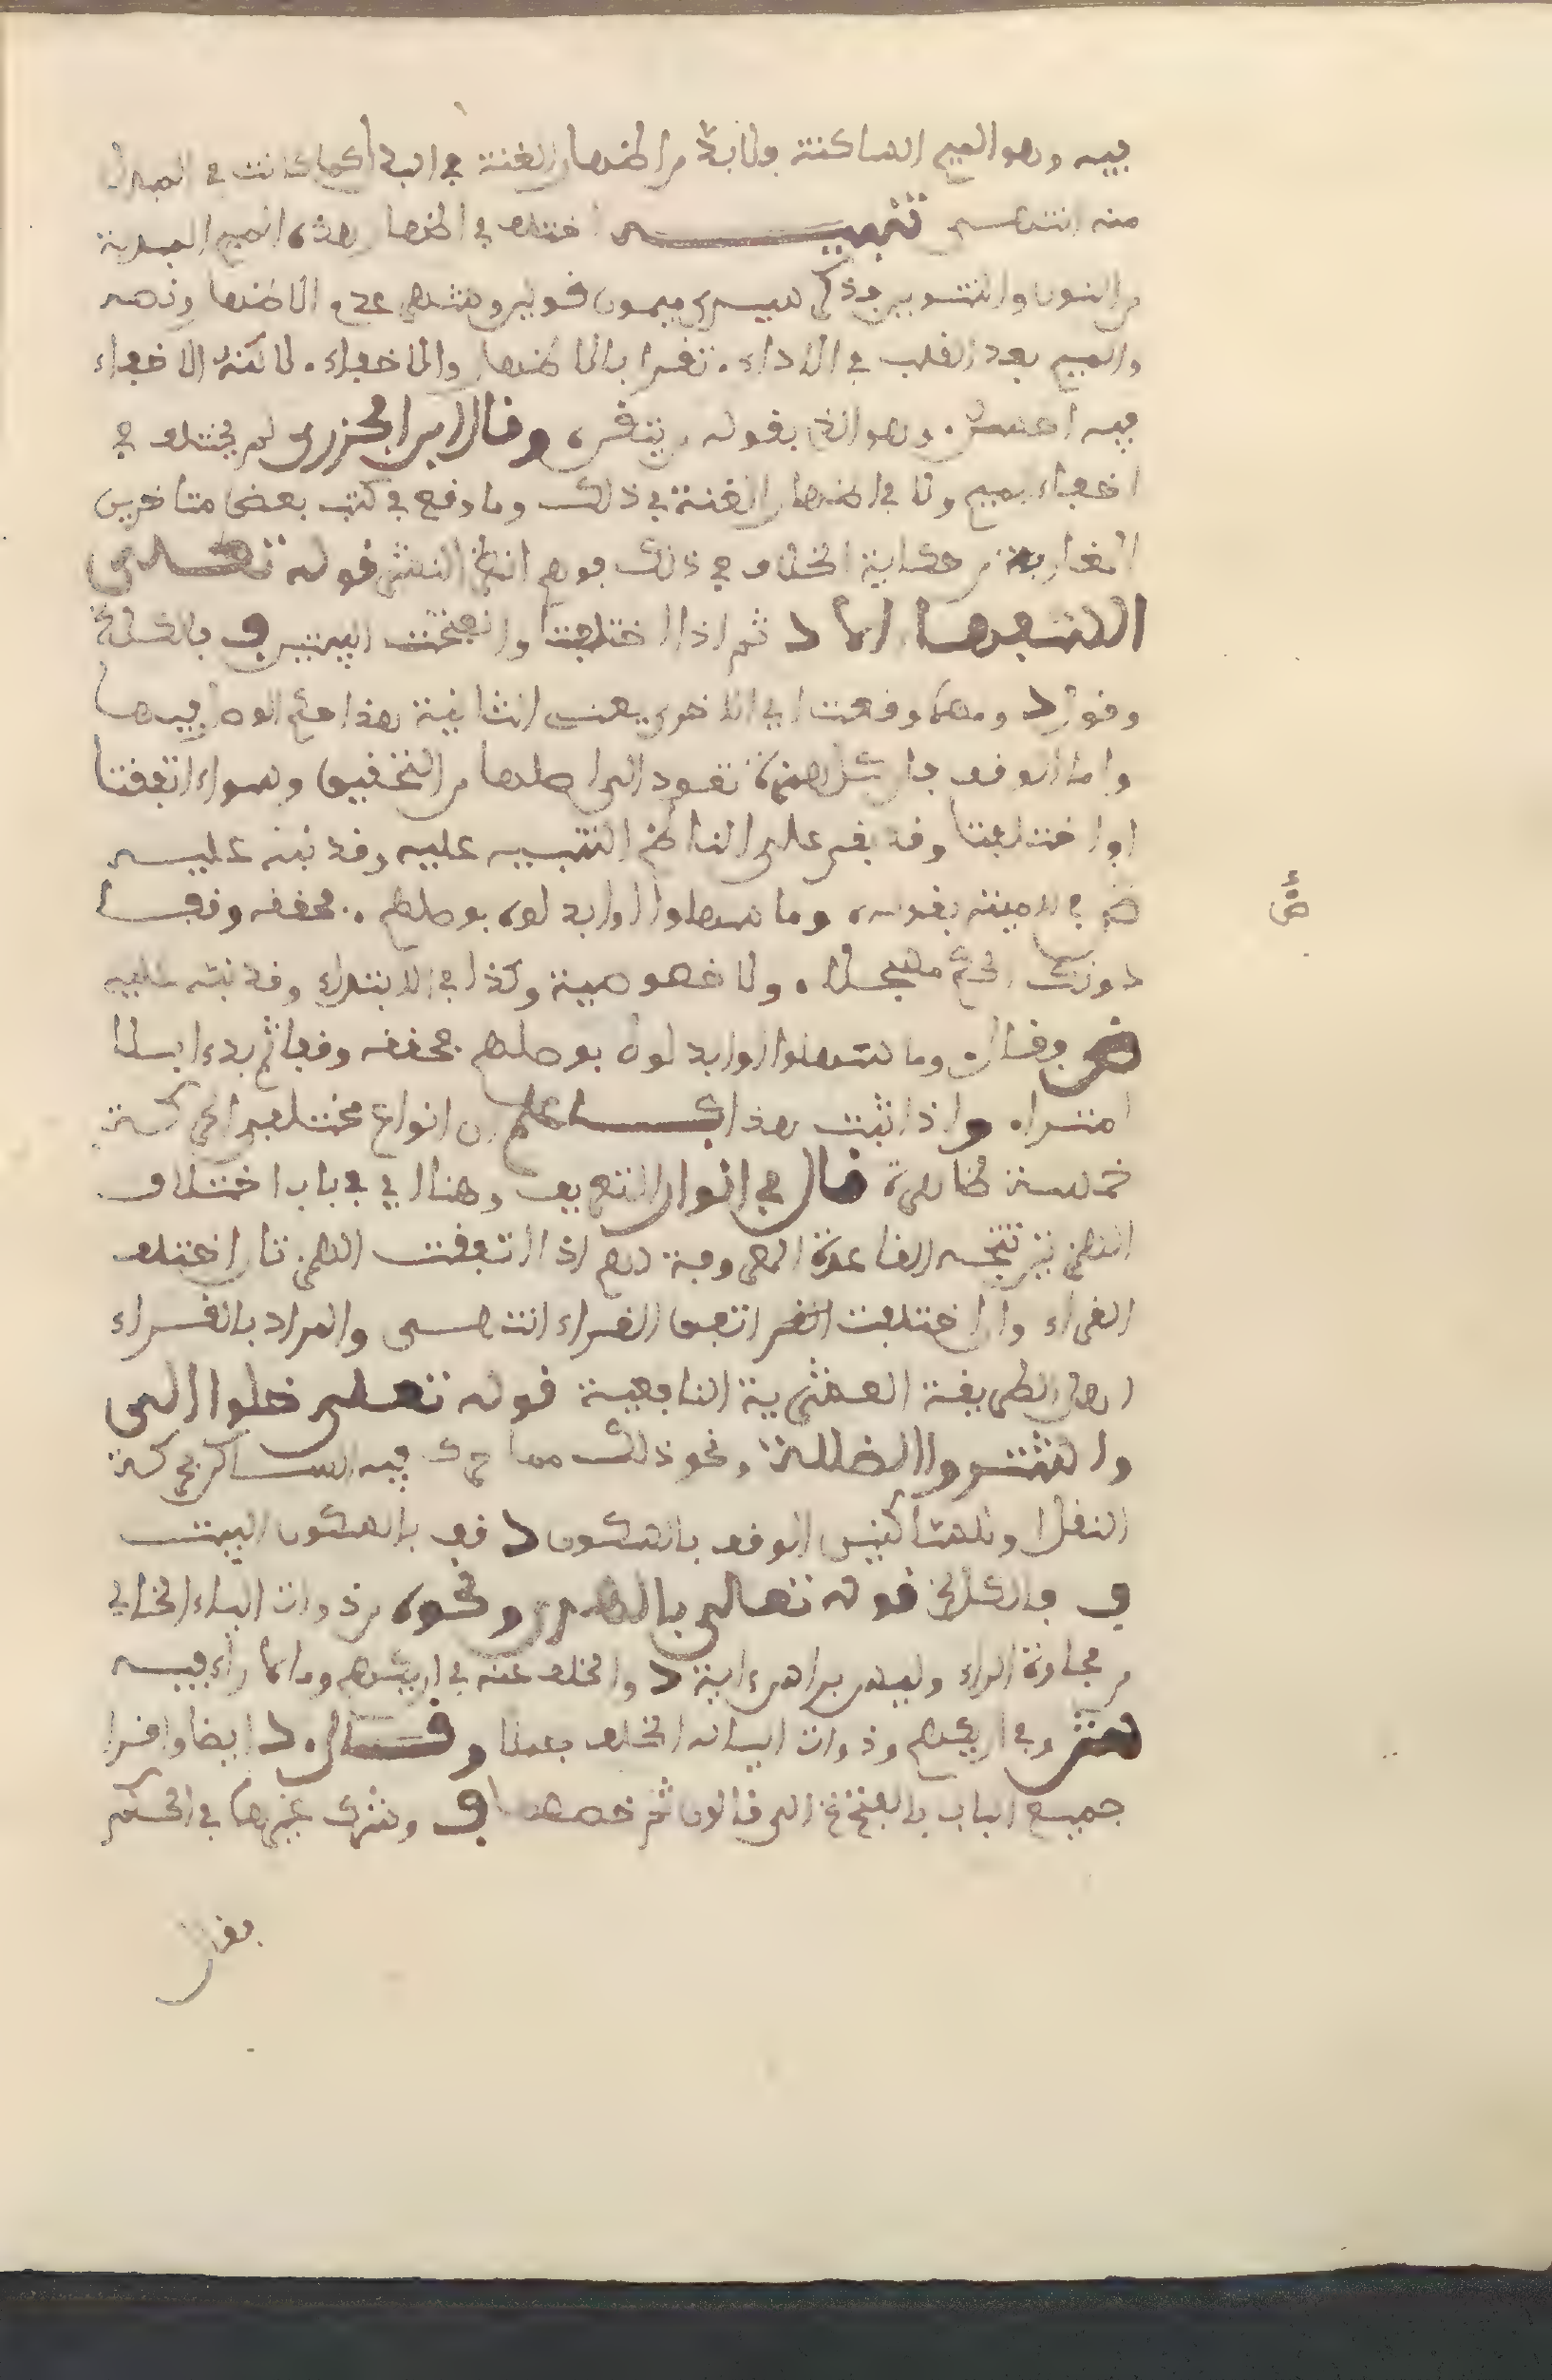 فيه وهو الميم الساكنة ولا بد من اظهار الغنة في البدل كما كانت في المبدل
منه انتهى تنبيه اختلف في اظهار هذه الميم المبدلة
من النون والتنوين فذكر سيدي ميمون قولين وشهر عدم الاظهار ونصه
والميم بعد القلب في الاداء . تقرا بالاظهار والاخفاء . لاكنه الاخفاء
فيه احسن . وهو الذي يقوله من يتقن وقال ابن الجزري لم يختلف في
اخفاء ميم ولا في اظهار الغنة في ذلك وما وقع في كتب بعض متاخرين
المغاربة من حكاية الخلاف في ذلك فوهم انظر النشر قوله تعالى
السفهاء الا د ثم اذا اختلفتا وانفتحت البيتين ق بالشكل
وقول د ومهما وقعت اي الاخرى يعني الثانية هذا حكم الوصل فيهما
واما الوقف فان كل همزة تعود الى اصلها من التحقيق وسواء اتفقتا
او اختلفتا وقد بقي على الناظم التنبيه عليه وقد نبه عليه
ض في لاميته بقوله وما سهلوا او ابدلوه بوصلهم . محققه وقفا
دونك الحكم مسجلا . ولا خصوصية وكذا في الابتداء وقد نبه عليه
ض وقال وما سهلوا او ابدلوه بوصلهم محققه وقفا ثم بدءا بلا
امتراء واذا ثبت هذا فاعلم ان انواع مختلفي الحركة
خمسة ظاهرة قال في انوار التعريف وهنا اي في باب اختلاف
الهمزتين تتجه القاعدة المعروفة لهم اذا اتفقت الهمزتان اختلف
القراء وان اختلفت اتفق القراء انتهى والمراد بالقراء
اهل الطريقة العشرية النافعية قوله تعلى خلوا الى
واشتروا الضلالة ونحو ذلك مما حرك فيه الساكن بحركة
النقل او للساكنين الوقف بالسكون د قف بالسكون البيت
ق بالشكل قوله تعالى بالهدى ونحوه من ذوات الياء الخالي
من مجاورة الراء وليس براس ءاية د والخلف عنه في اريكهم وما لا راء فيه
ش وفي اريكهم وذوات الياء له الخلف جملا وقال د ايضا واقرا
جميع الباب بالفتح الى قالون ثم خصصه ق وشرك غيرها في الحكم
بقول
ض